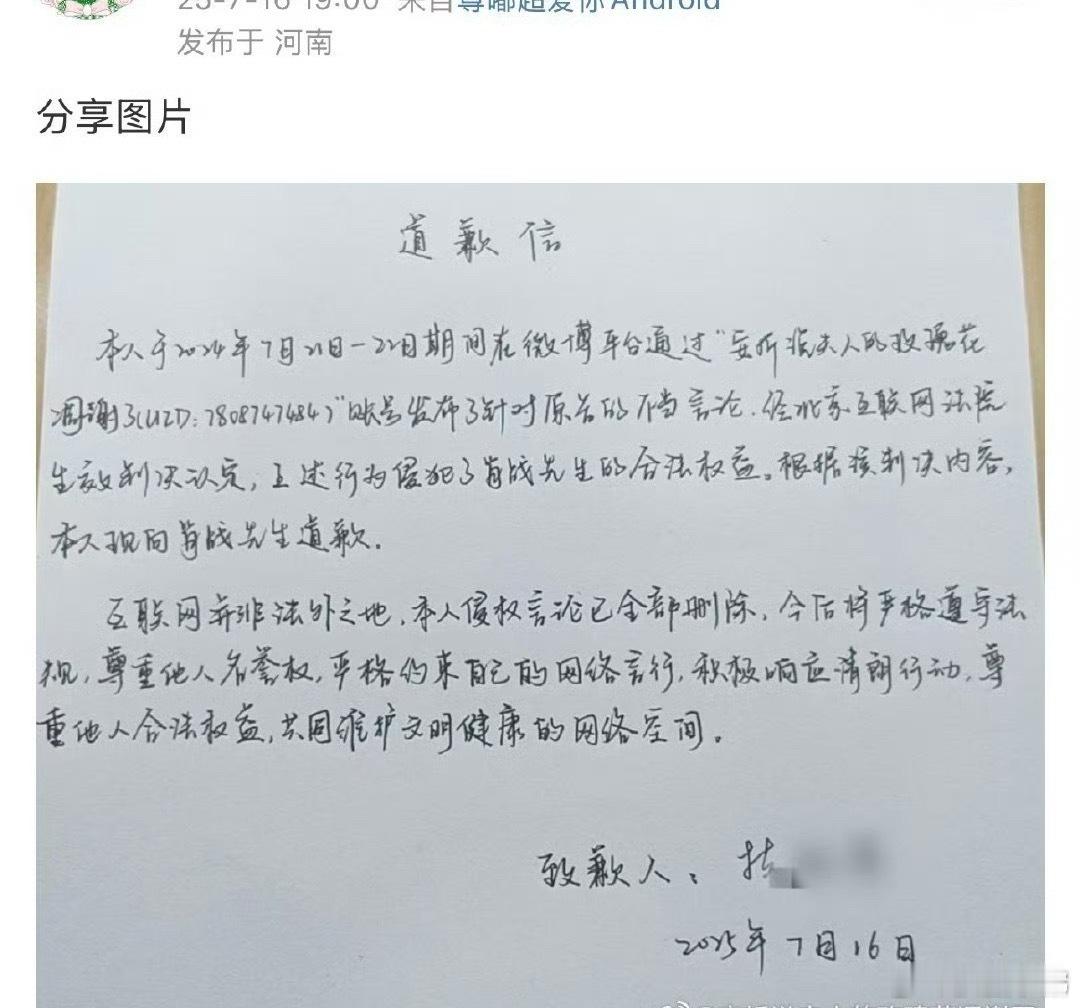 25-7-16 19:00 来自尊嘟超爱你Android
发布于 河南
分享图片
道歉信
本人于2024年7月21日-22日期间在微博平台通过"安昕浓夫人的玫瑰花
凋谢了(UID:7808747484)"账号发布了针对原告的不当言论,经北京互联网法院
生效判决认定,上述行为侵犯了肖战先生的合法权益。根据该判决内容,
本人现向肖战先生道歉.
互联网并非法外之地,本人侵权言论已全部删除,今后将严格遵守法
规,尊重他人名誉权,严格约束自己的网络言行,积极响应清朗行动,尊
重他人合法权益,共同维护文明健康的网络空间。
致歉人:
2025年7月16日